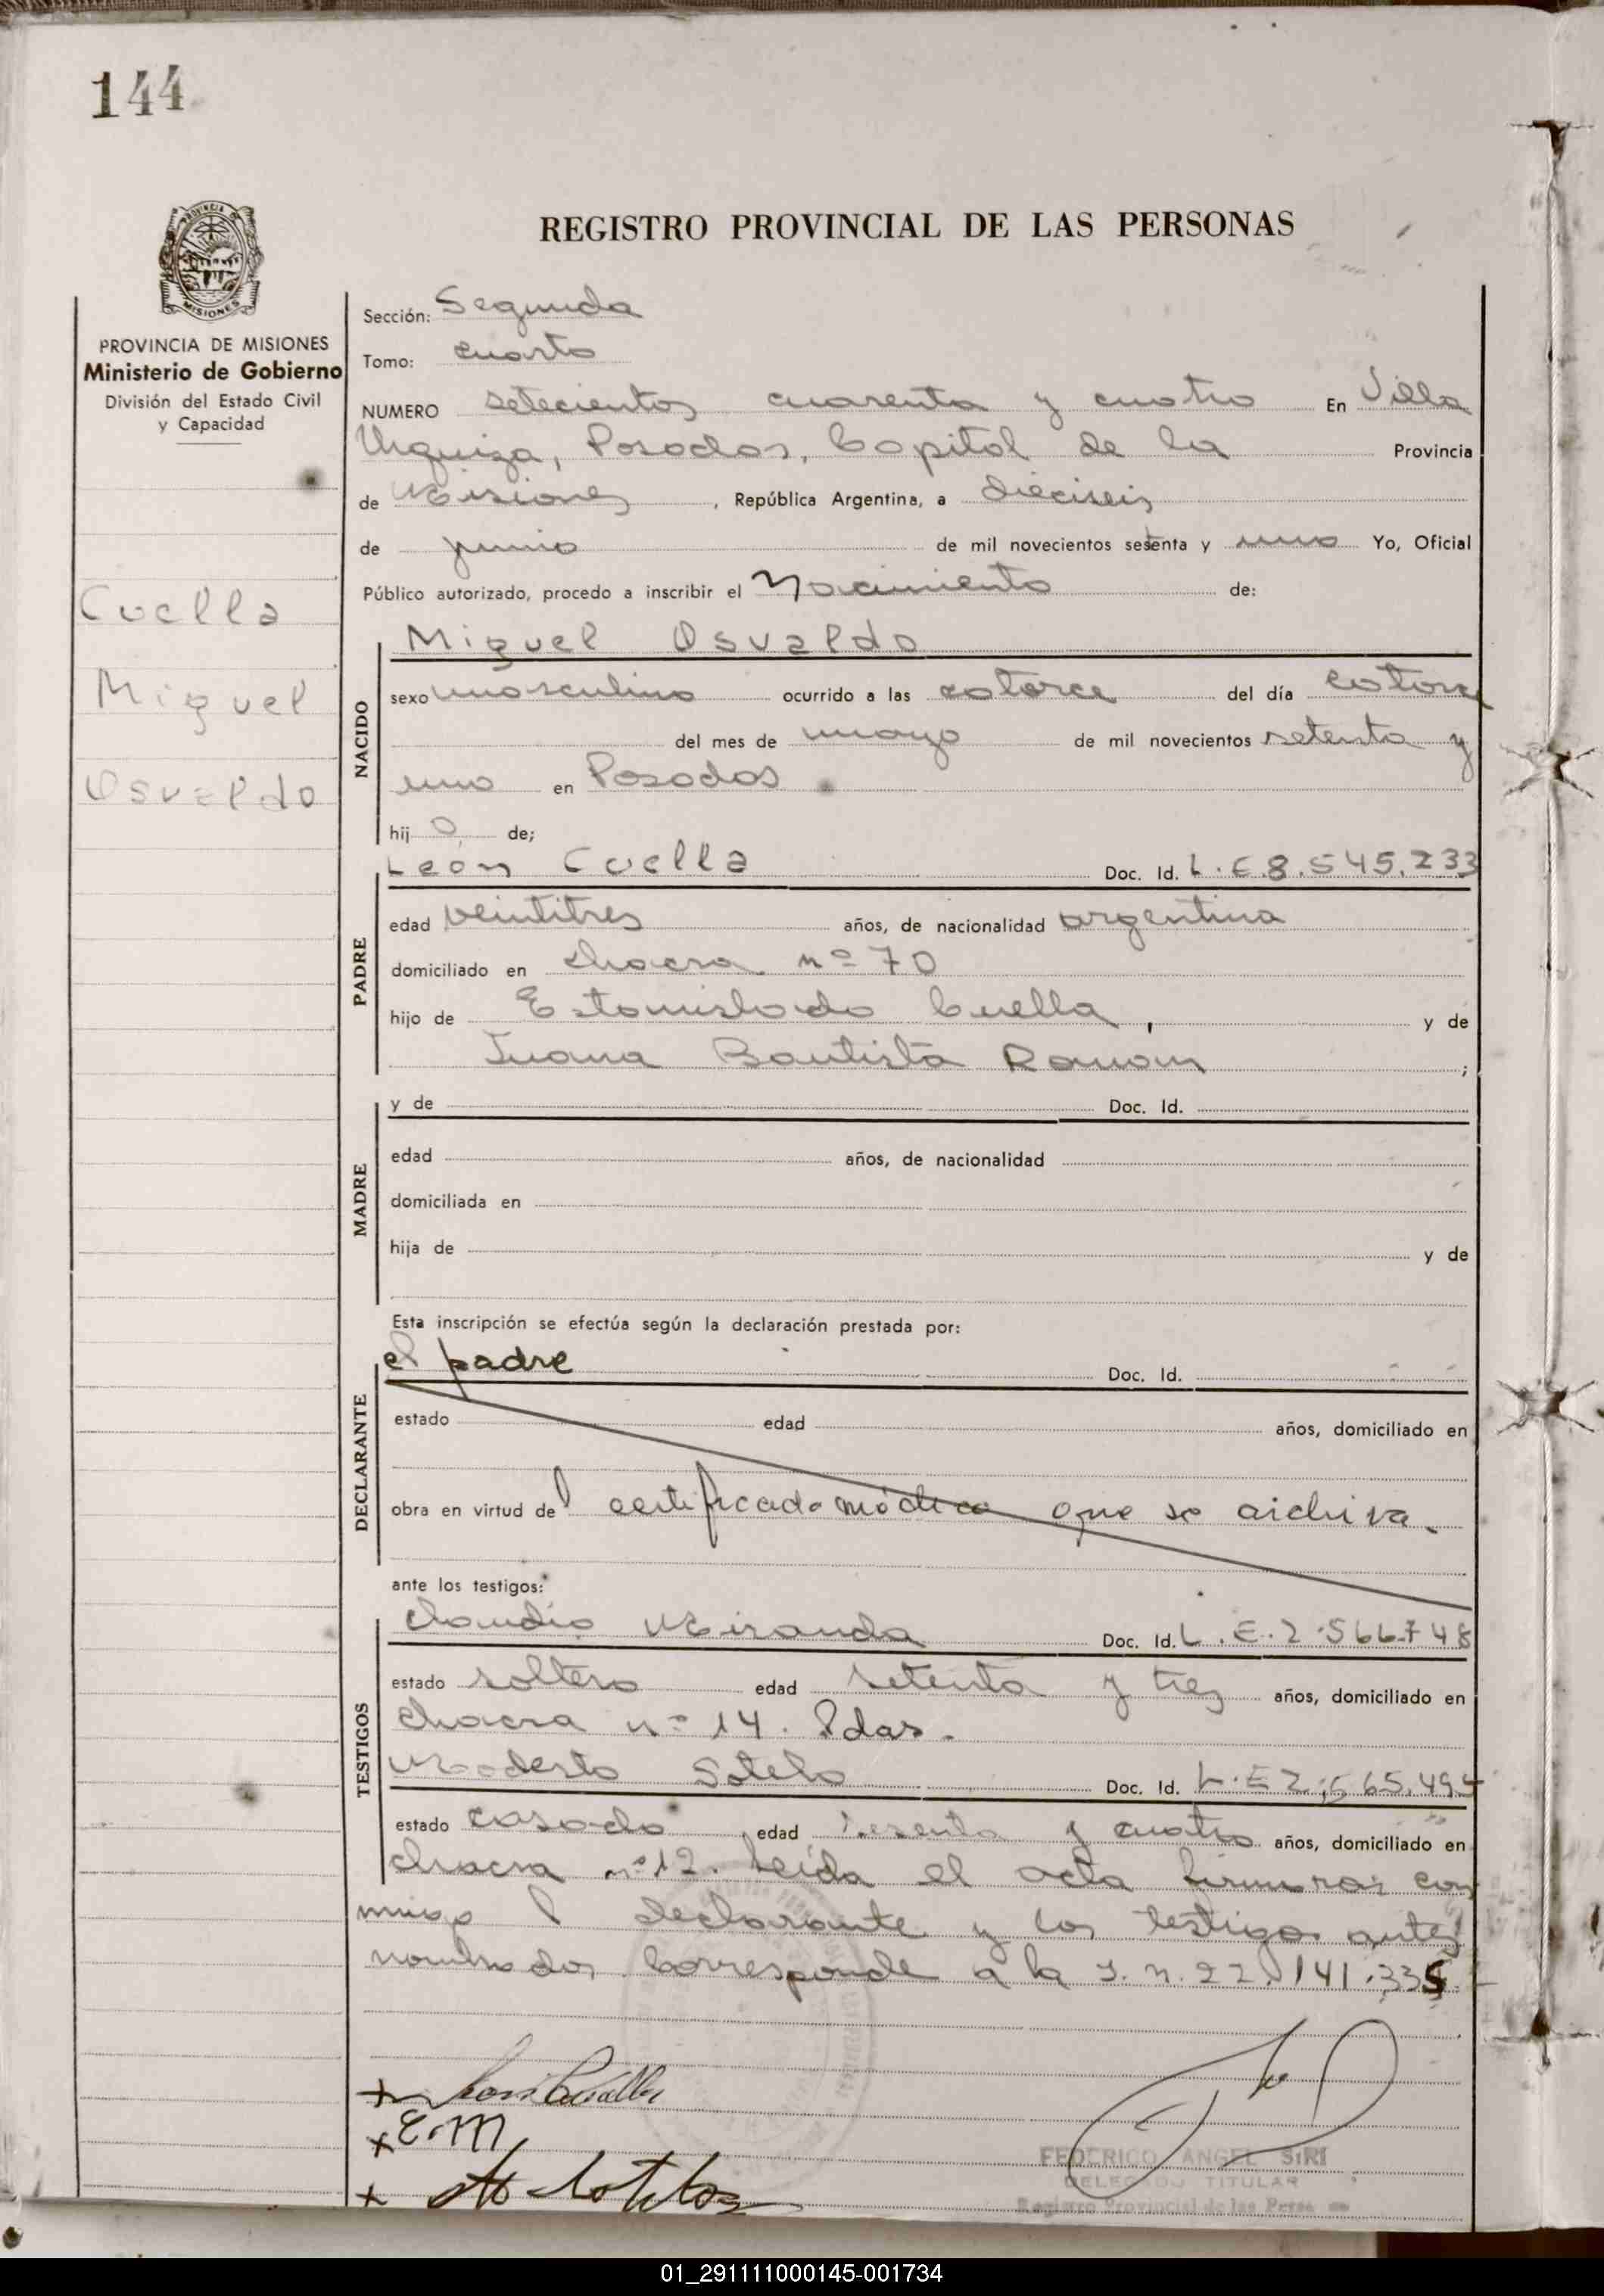 144
PROVINCIA DE MISIONES
MISIONES
PROVINCIA DE MISIONES
Ministerio de Gobierno
División del Estado Civil
y Capacidad
Cuella
Miguel
Osvaldo
REGISTRO PROVINCIAL DE LAS PERSONAS
Sección: Segunda
Tomo: cuarto
NUMERO setecientos cuarenta y cuatro En Villa
Urquiza, Posadas, Capital de la Provincia
de Misiones, República Argentina, a dieciseis
de junio de mil novecientos setenta y uno Yo, Oficial
Público autorizado, procedo a inscribir el Nacimiento de:
NACIDO
Miguel Osvaldo
sexo masculino ocurrido a las catorce del día catorce
del mes de mayo de mil novecientos setenta y
uno en Posadas
hijo de;
PADRE
León Cuella Doc. Id. L.E.8.545.233
edad veintitres años, de nacionalidad argentina
domiciliado en chacra nº 70
hijo de Estanislado Cuella, y de
Juana Bautista Ramon;
MADRE
y de Doc. Id.
edad años, de nacionalidad
domiciliada en
hija de y de
Esta inscripción se efectúa según la declaración prestada por:
DECLARANTE
el padre Doc. Id.
estado edad años, domiciliado en
obra en virtud del certificado médico que se archiva.
ante los testigos:
TESTIGOS
Claudio Miranda Doc. Id. L.E.2.566.748
estado soltero edad setenta y tres años, domiciliado en
chacra nº 14. Pdas.
Modesto Sotelo Doc. Id. L.E 2.565.494
estado casado edad sesenta y cuatro años, domiciliado en
chacra nº 12. Leída el acta firmaron con
migo l declarante y los testigos antes
nombrados. Corresponde a la I.N. 22.141.335
León Cuella
E.M
FEDERICO ANGEL SIRI
DELEGADO TITULAR
Registro Provincial de las Perso
01_291111000145-001734